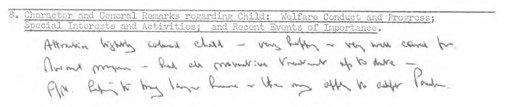 8. Character and General Remarks regarding Child: Welfare Conduct and Progress;
Special Interests and Activities; and Recent Events of Importance.
Attractive lightly coloured child - very healthy - very well cared for.
Normal progress - had all preventive treatment up to date -
F/M. hoping to buy larger house - then may apply to adopt